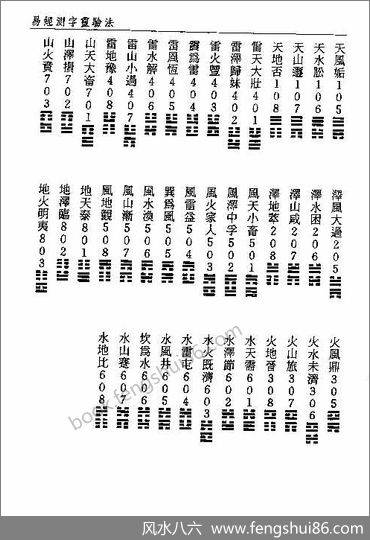 易經測字靈驗法
天風姤105
天水訟106
天山遯107
天地否108
雷天大壯401
雷澤歸妹402
雷火豐403
震爲雷404
雷風恆405
雷水解406
雷山小過407
雷地豫408
山天大畜701
山澤損702
山火賁703
澤風大過205
澤水困206
澤山咸207
澤地萃208
風天小畜501
風澤中孚502
風火家人503
風雷益504
巽爲風505
風水渙506
風山漸507
風地觀508
地天泰801
地澤臨802
地火明夷803
火風鼎305
火水未濟306
火山旅307
火地晉308
水天需601
水澤節602
水火既濟603
水雷屯604
水風井605
坎爲水606
水山蹇607
水地比608
book.fengshui86.com
风水八六 www.fengshui86.com